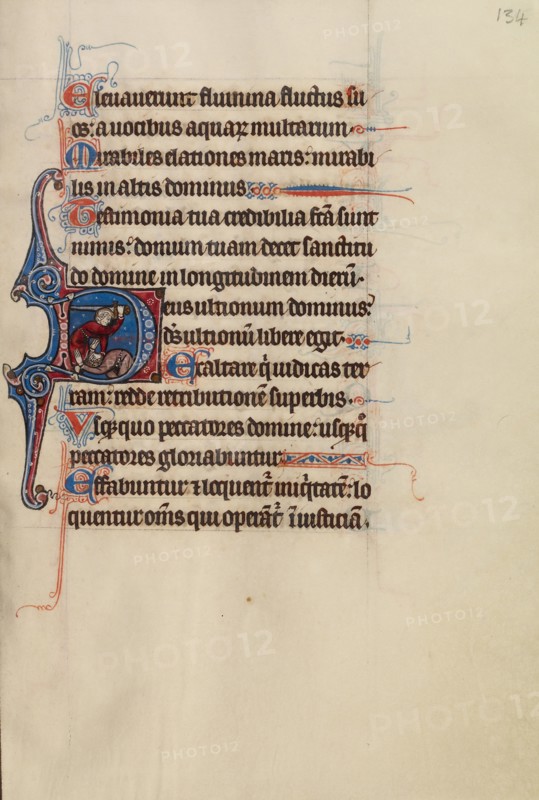 134
Eleuauerunt flumina fluctus su
os: a uocibus aquaꝝ multarum
Mirabiles elationes maris: mirabi
lis in altis dominus
Testimonia tua credibilia fcā sunt
nimis: domum tuam decet sanctitu
do domine in longitudinem dierū.
Deus ultionum dominus:
ds̄ ultionū libere egit.
Exaltare q̇ iudicas ter
ram: redde retributionē superbis.
Vsqꝫ quo peccatores domine: usqꝫ q̊
peccatores gloriabuntur
Effabuntur ⁊ loquent᷑ iniq̇tatē: lo
quentur om̄s qui operāt᷑ iniusticiā.
PHOTO12